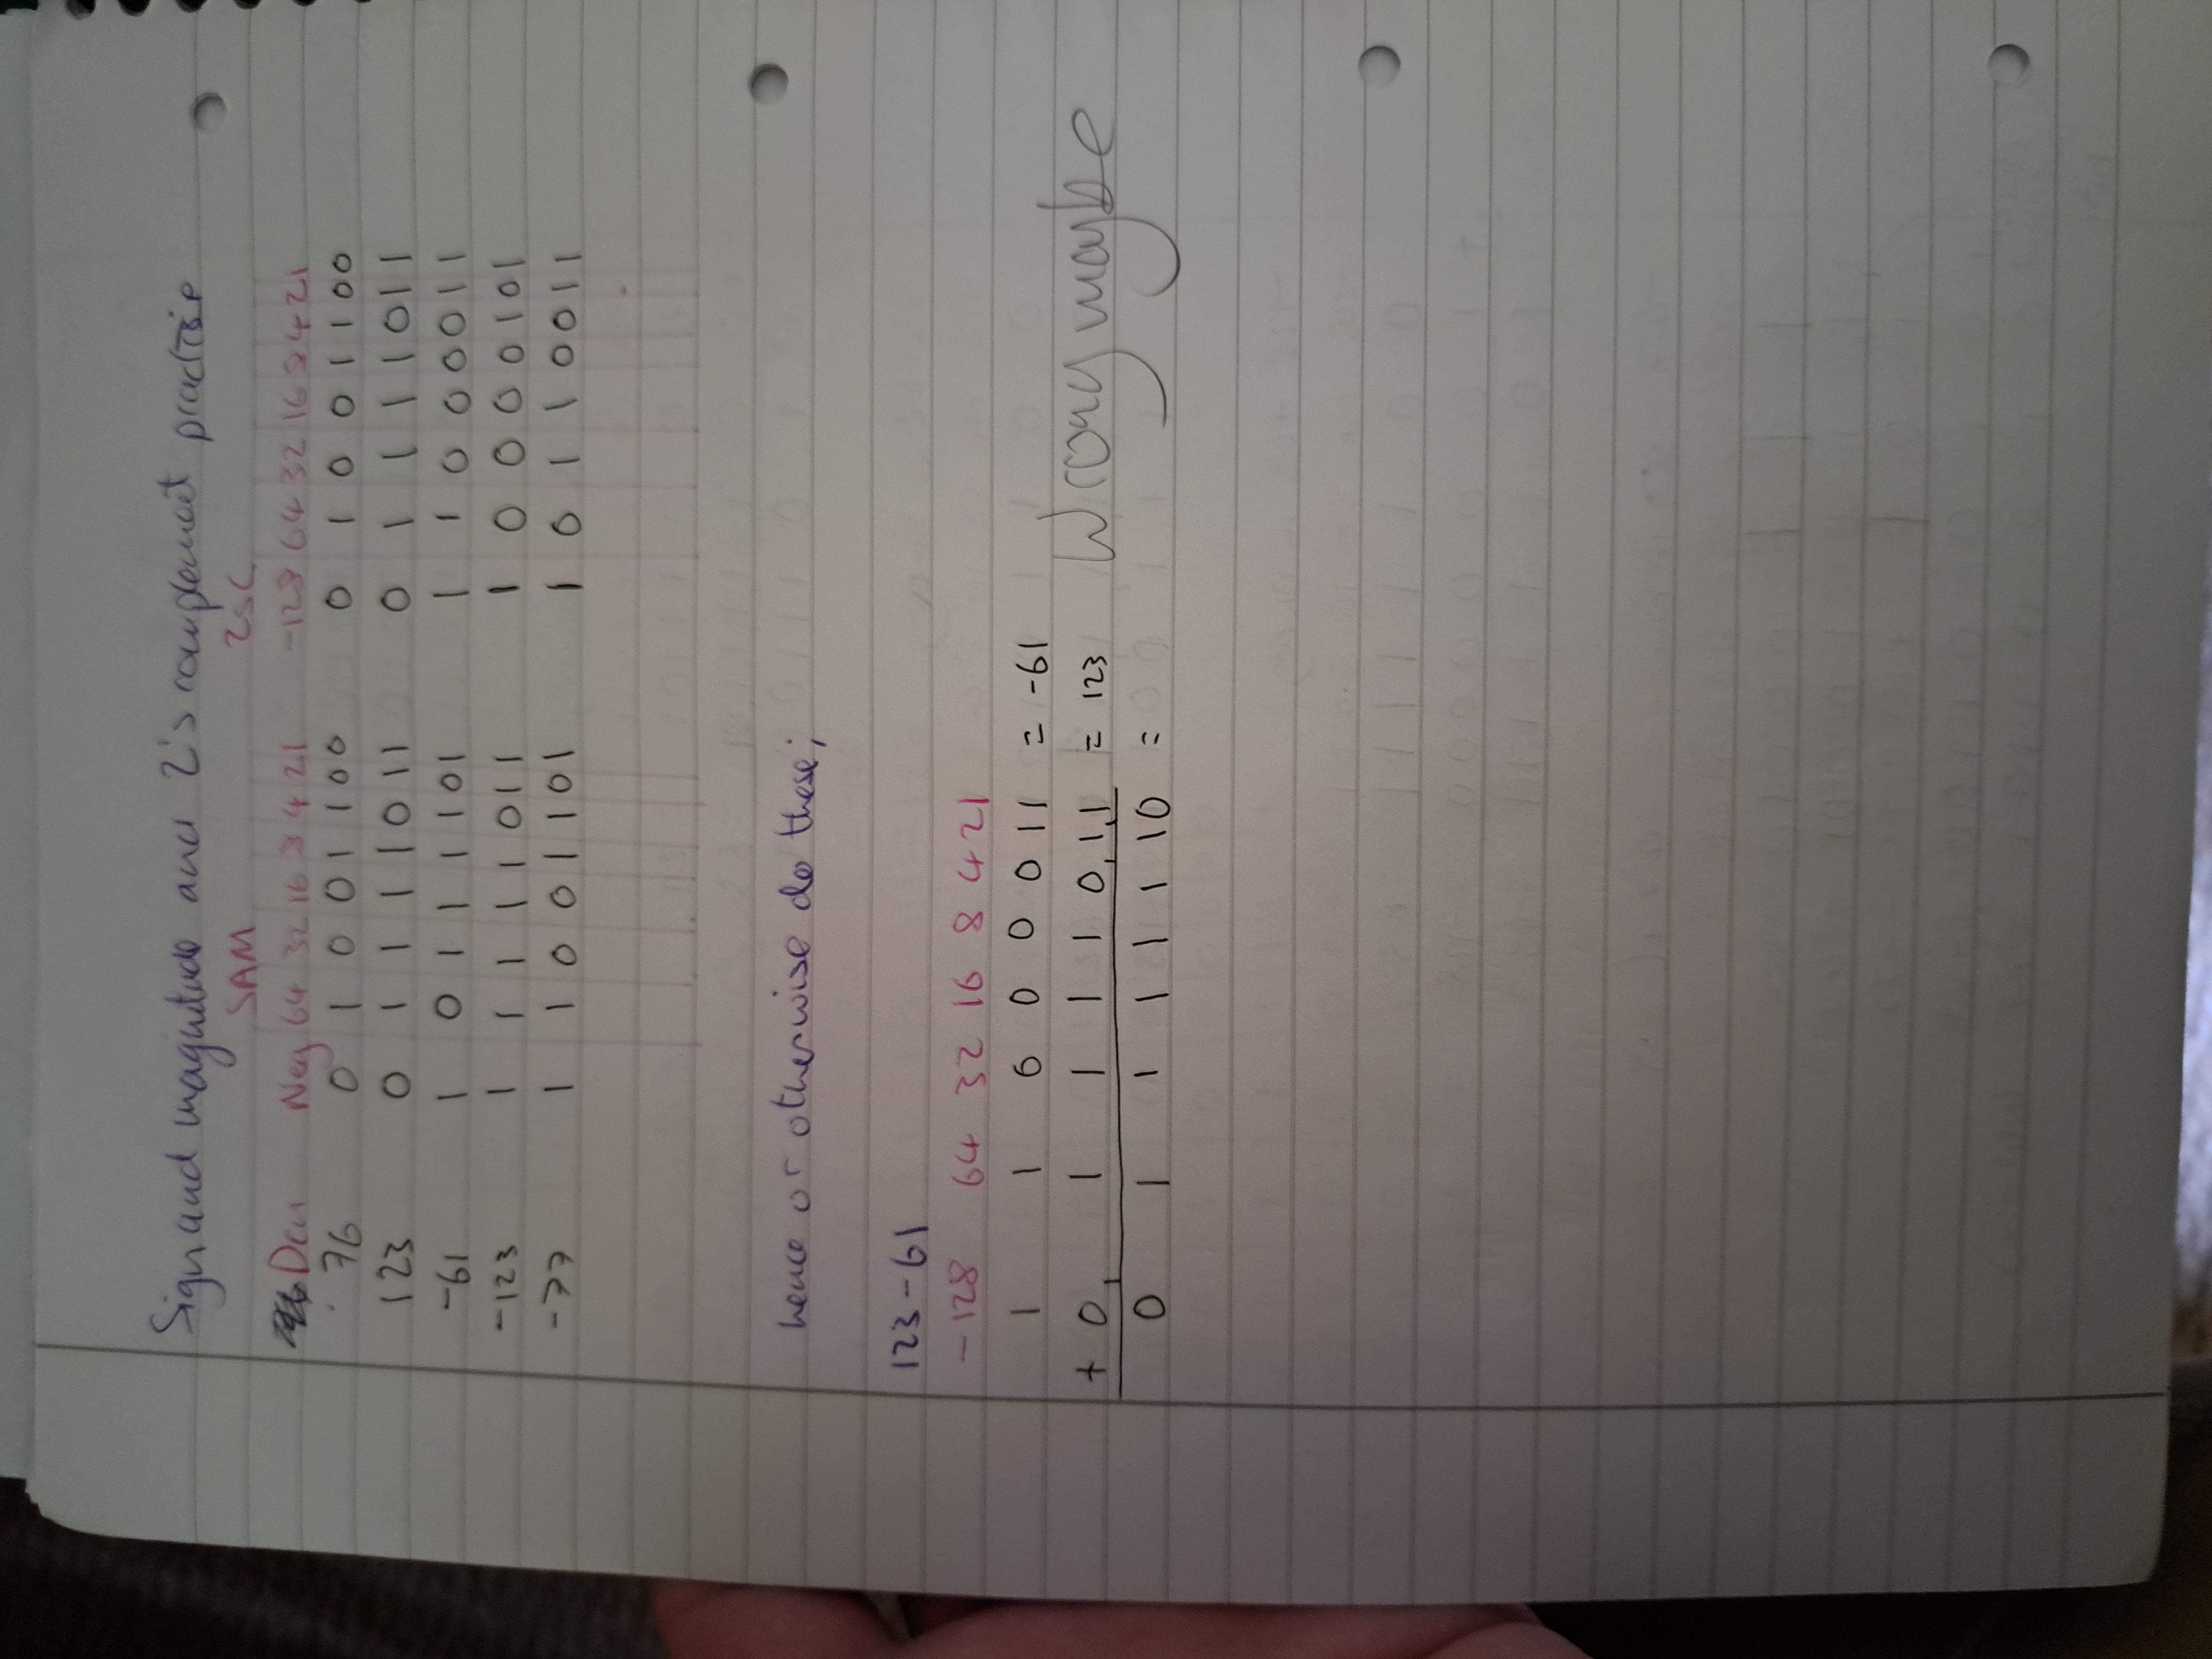 Sign and magnitude and 2's complement practise
SAM 2SC
Den Neg 64 32 16 8 4 2 1 -128 64 32 16 8 4 2 1
76 0 1 0 0 1 1 0 0 0 1 0 0 1 1 0 0
123 0 1 1 1 1 0 1 1 0 1 1 1 1 0 1 1
-61 1 0 1 1 1 1 0 1 1 1 0 0 0 0 1 1
-123 1 1 1 1 1 0 1 1 1 0 0 0 0 1 0 1
-77 1 1 0 0 1 1 0 1 1 0 1 1 0 0 1 1
hence or otherwise do these;
123 - 61
-128 64 32 16 8 4 2 1
1 1 0 0 0 0 1 1 = -61
+ 0 1 1 1 1 0 1 1 = 123
0 1 1 1 1 1 1 0 =
Wrong maybe